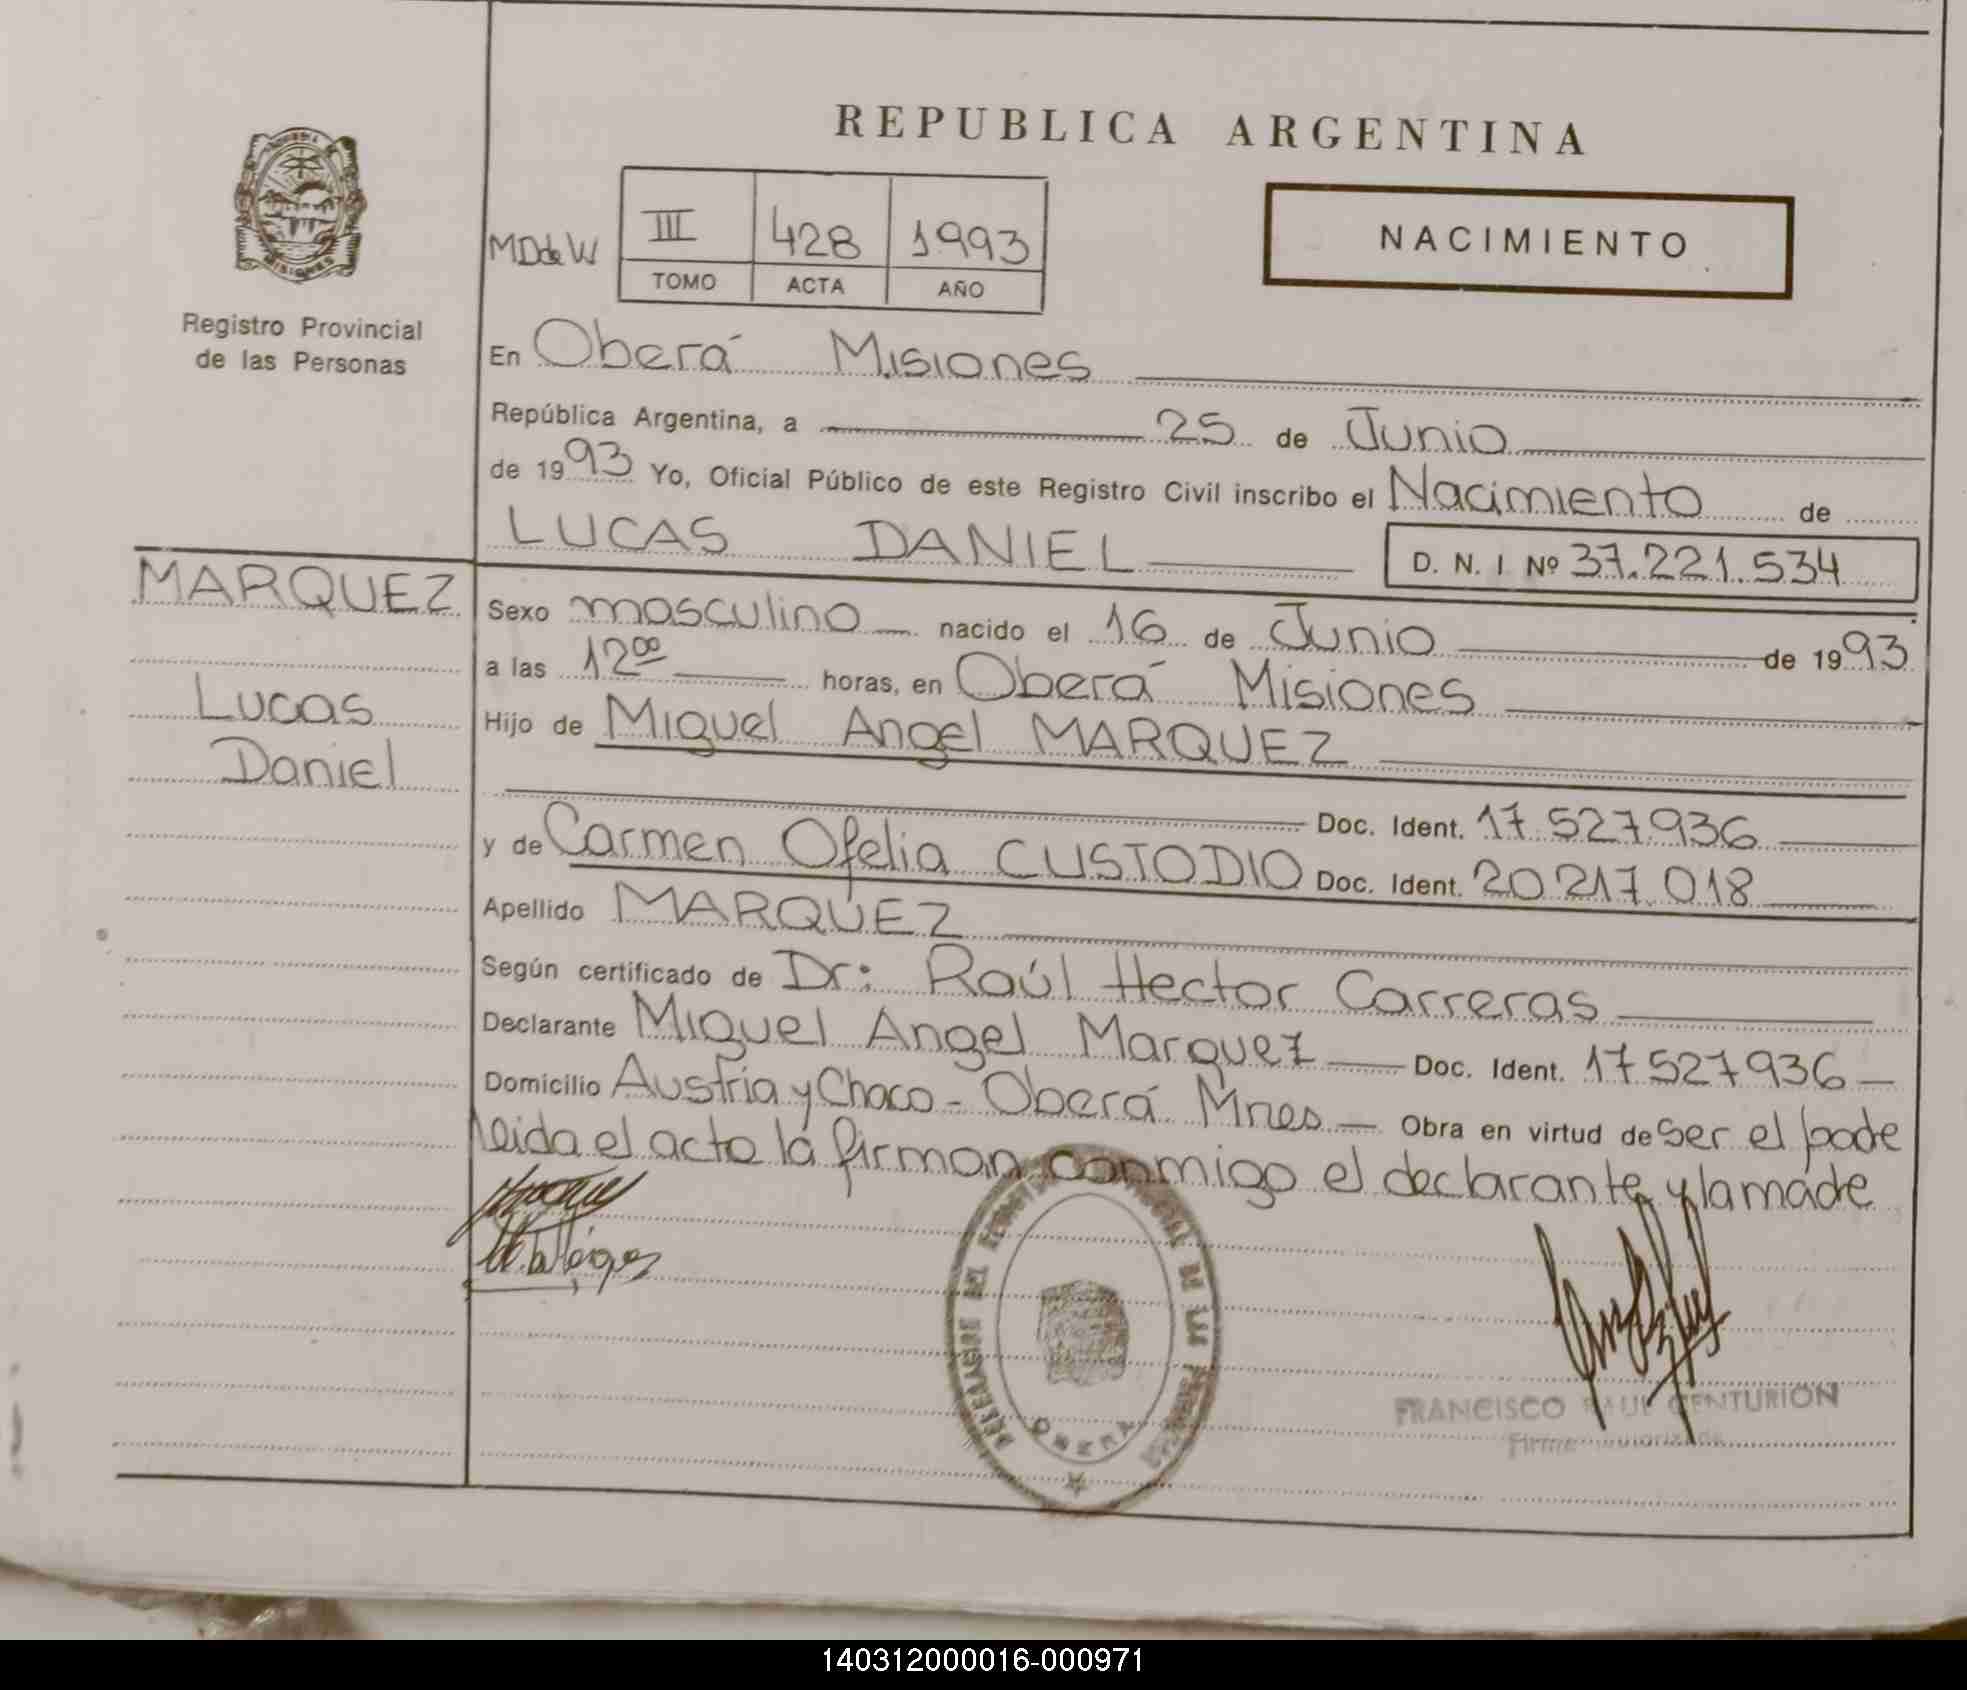 REPUBLICA ARGENTINA
MISIONES
Registro Provincial
de las Personas
MD de W
III 428 1993
TOMO ACTA AÑO
NACIMIENTO
En Oberá Misiones
República Argentina, a 25 de Junio
de 1993 Yo, Oficial Público de este Registro Civil inscribo el Nacimiento de
LUCAS DANIEL D. N. I. Nº 37.221.534
MARQUEZ
Lucas
Daniel
Sexo masculino nacido el 16 de Junio de 1993
a las 12 00 horas, en Oberá Misiones
Hijo de Miguel Angel MARQUEZ
Doc. Ident. 17.527.936
y de Carmen Ofelia CUSTODIO Doc. Ident. 20.217.018
Apellido MARQUEZ
Según certificado de Dr: Raúl Hector Carreras
Declarante Miguel Angel Marquez Doc. Ident. 17.527.936
Domicilio Austria y Chaco - Oberá Mnes Obra en virtud de ser el padre
leida el acta la firman conmigo el declarante y la madre
DELEGACION DEL REGISTRO PROVINCIAL DE LAS PERSONAS
OBERA
FRANCISCO RAUL CENTURION
Firma autorizada
140312000016-000971